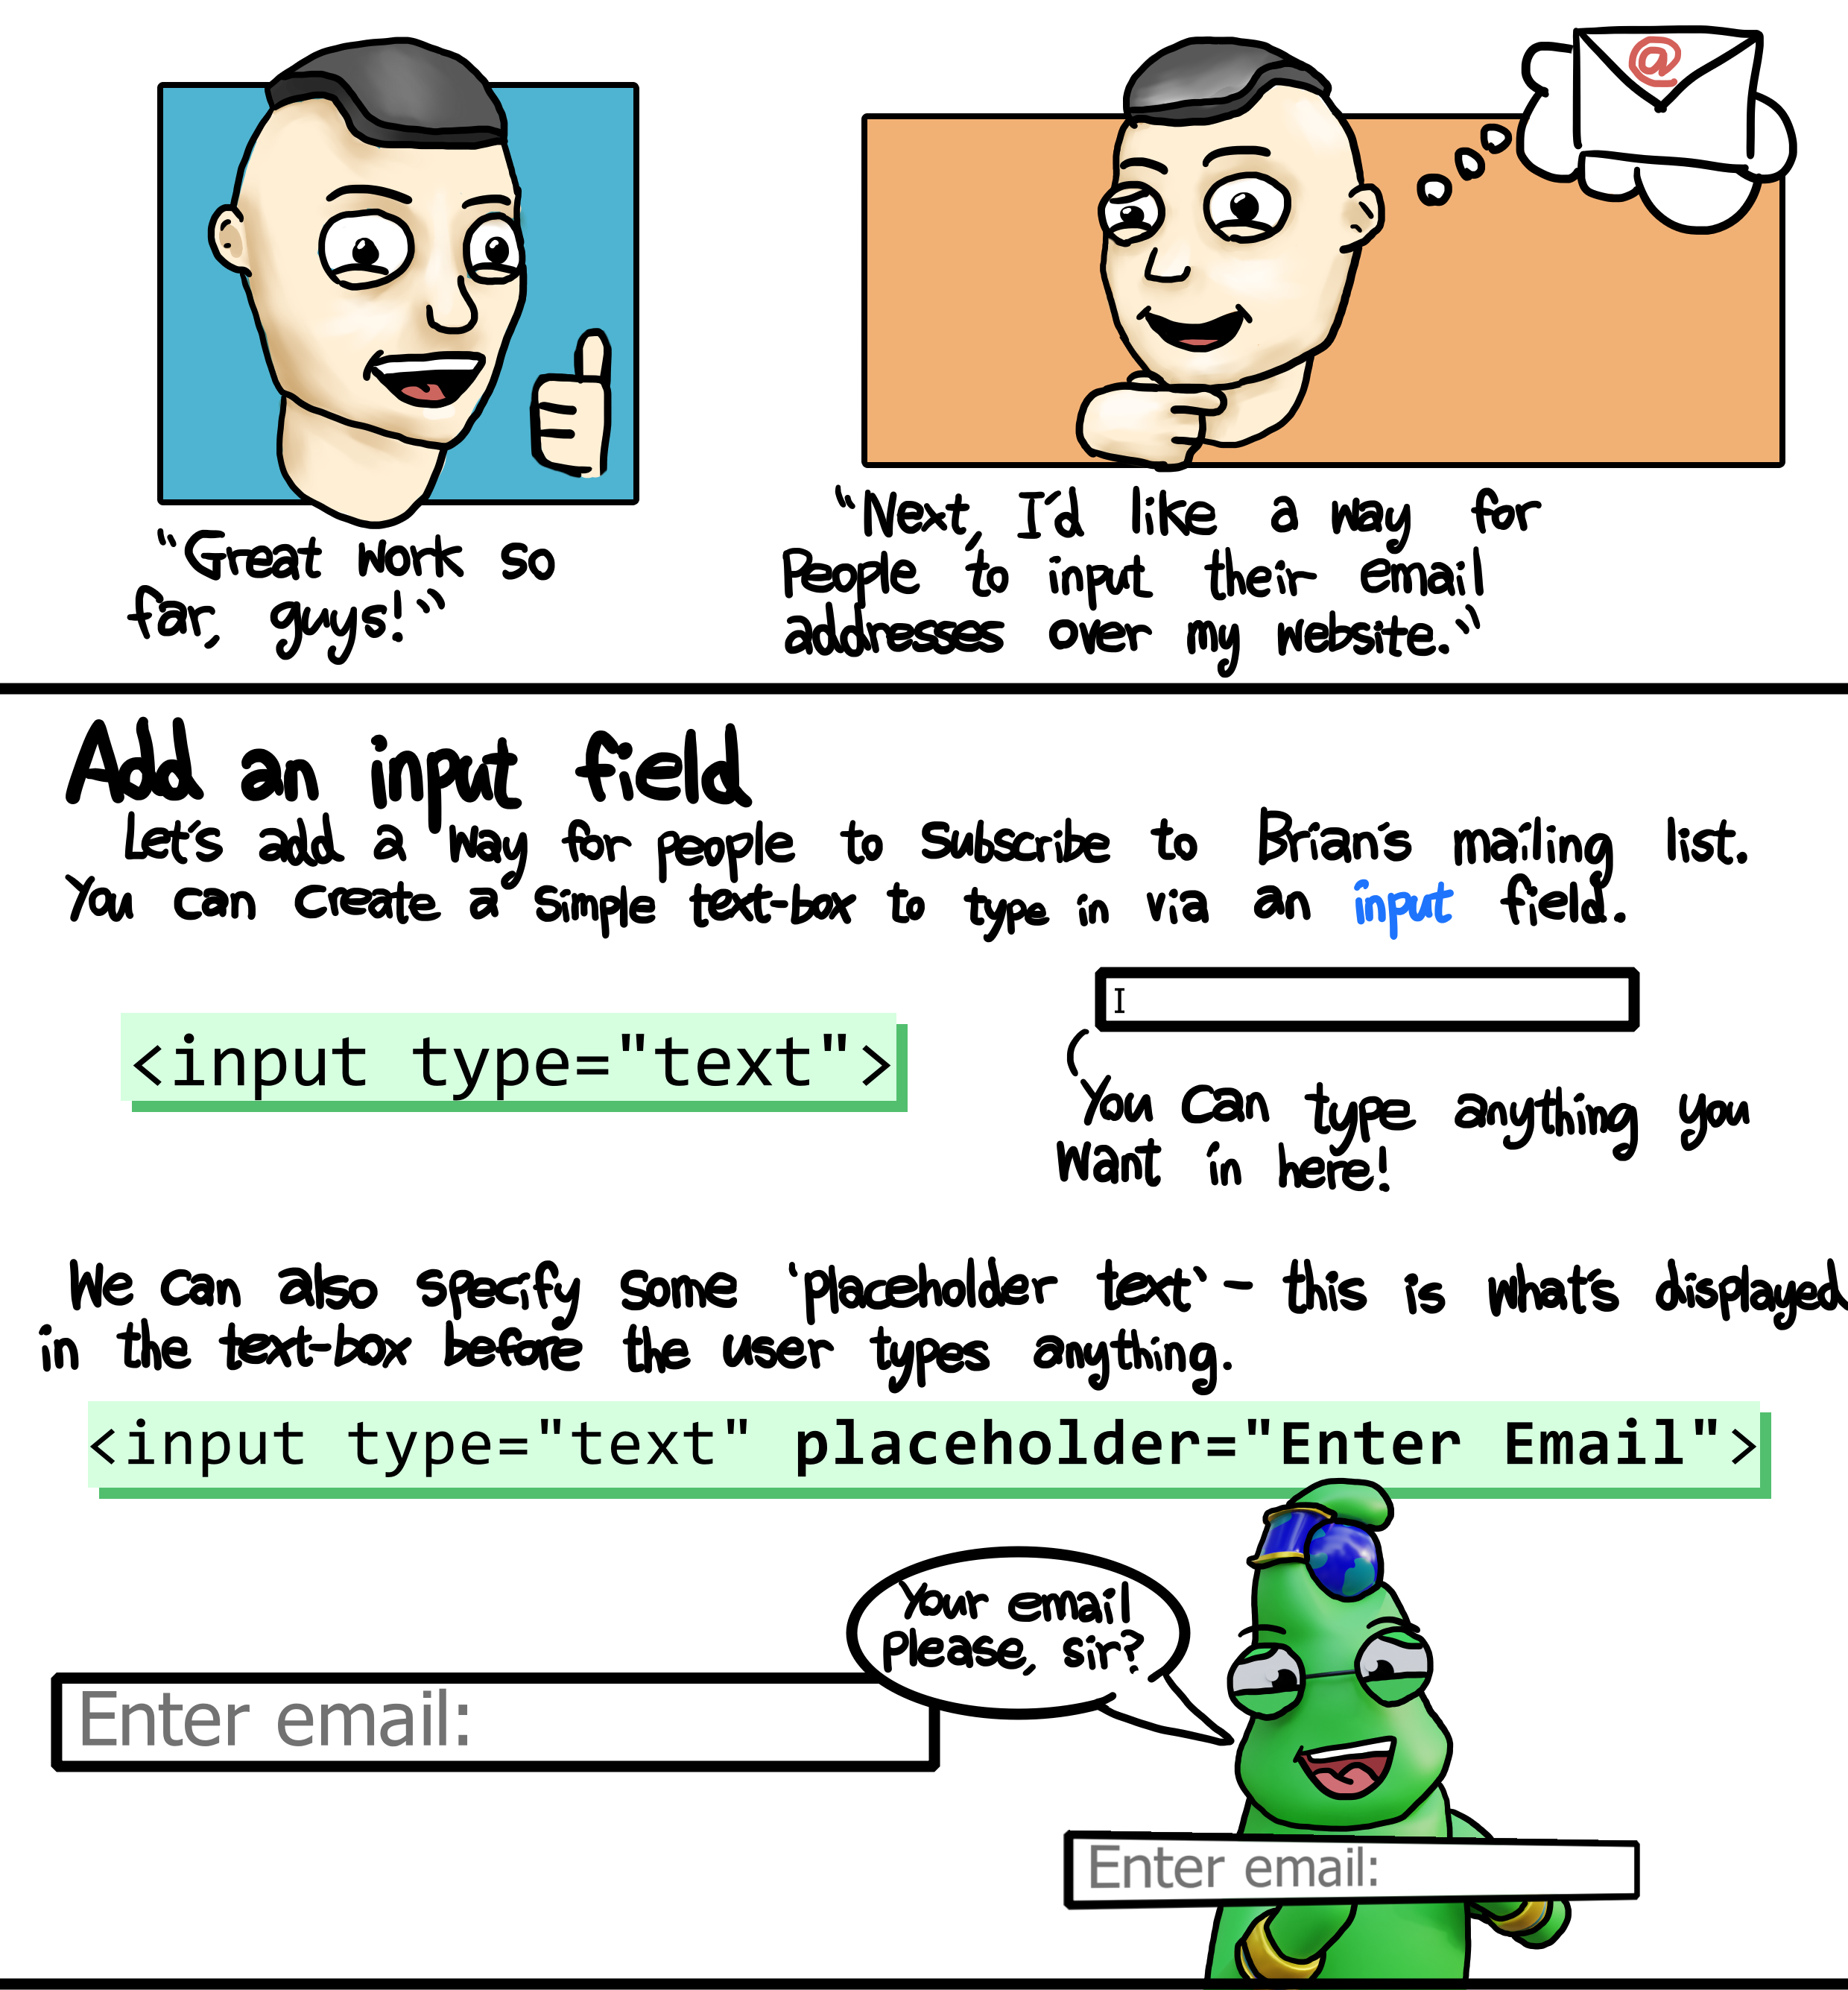 "Great work so
far, guys!"
"Next, I'd like a way for
People to input their email
addresses over my website."
@
Add an input field
Let's add a way for people to subscribe to Brian's mailing list.
You can create a simple text-box to type in via an input field.
<input type="text">
I
You can type anything you
want in here!
We can also specify some 'placeholder text' - this is what's displayed
in the text-box before the user types anything.
<input type="text" placeholder="Enter Email">
Your email
please, sir?
Enter email:
Enter email: